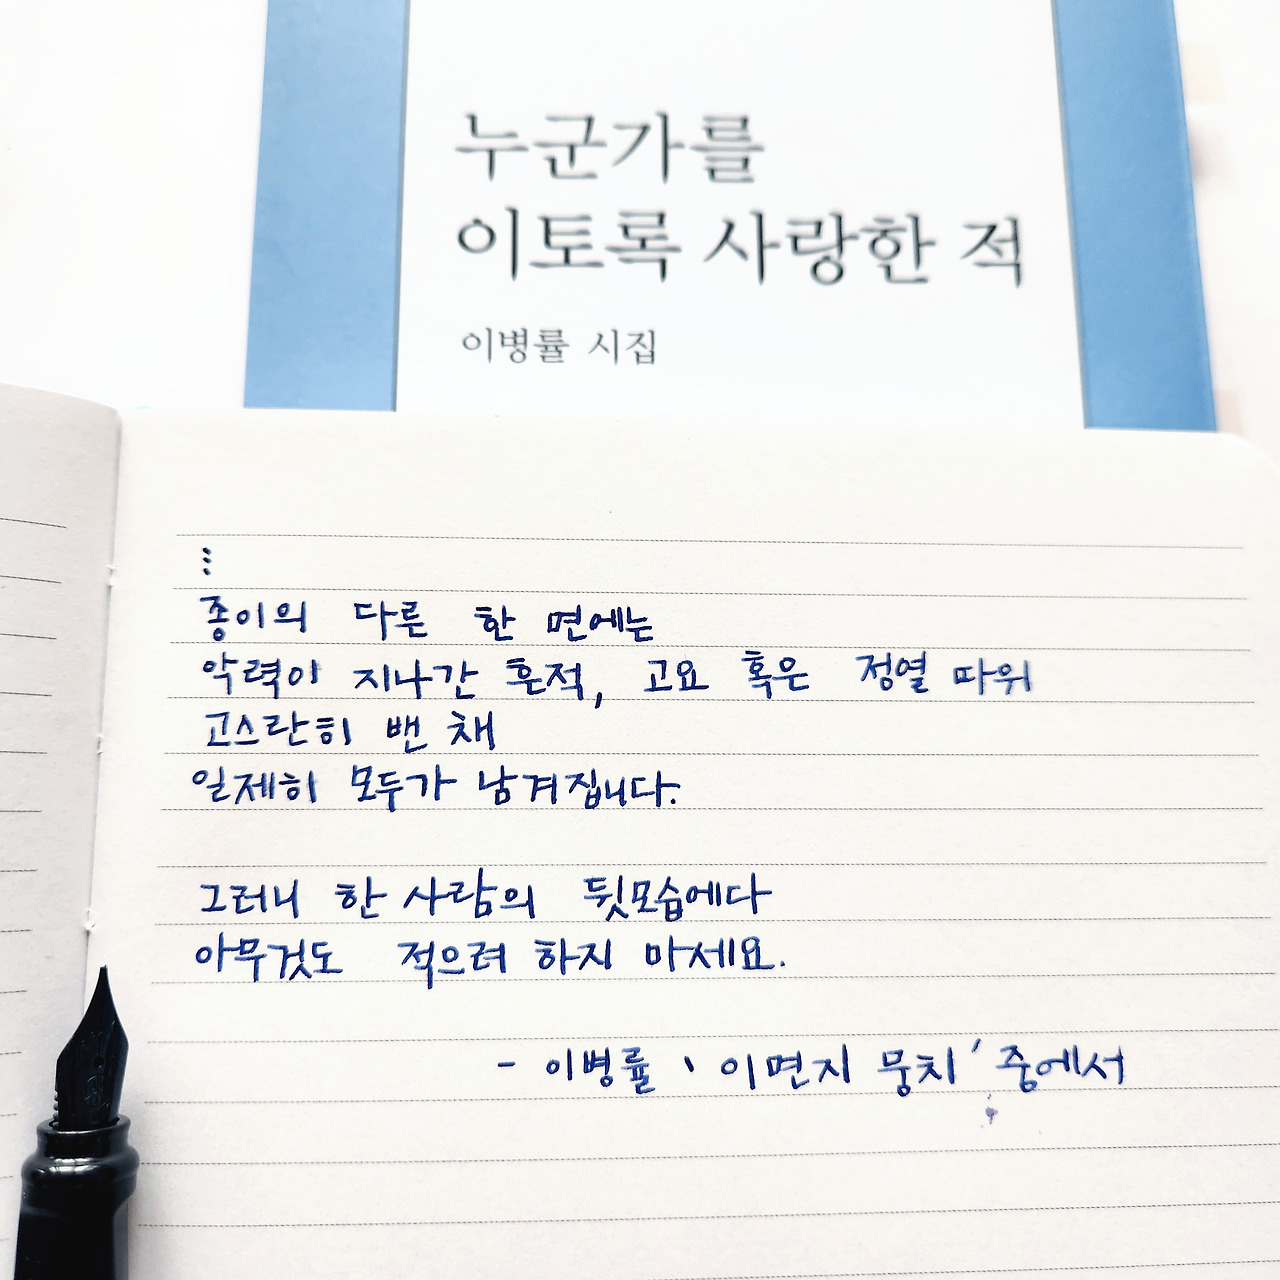 누군가를
이토록 사랑한 적
이병률 시집
⋮
종이의 다른 한 면에는
악력이 지나간 흔적, 고요 혹은 정열 따위
고스란히 밴 채
일제히 모두가 남겨집니다.
그러니 한 사람의 뒷모습에다
아무것도 적으려 하지 마세요.
- 이병률 '이면지 뭉치' 중에서